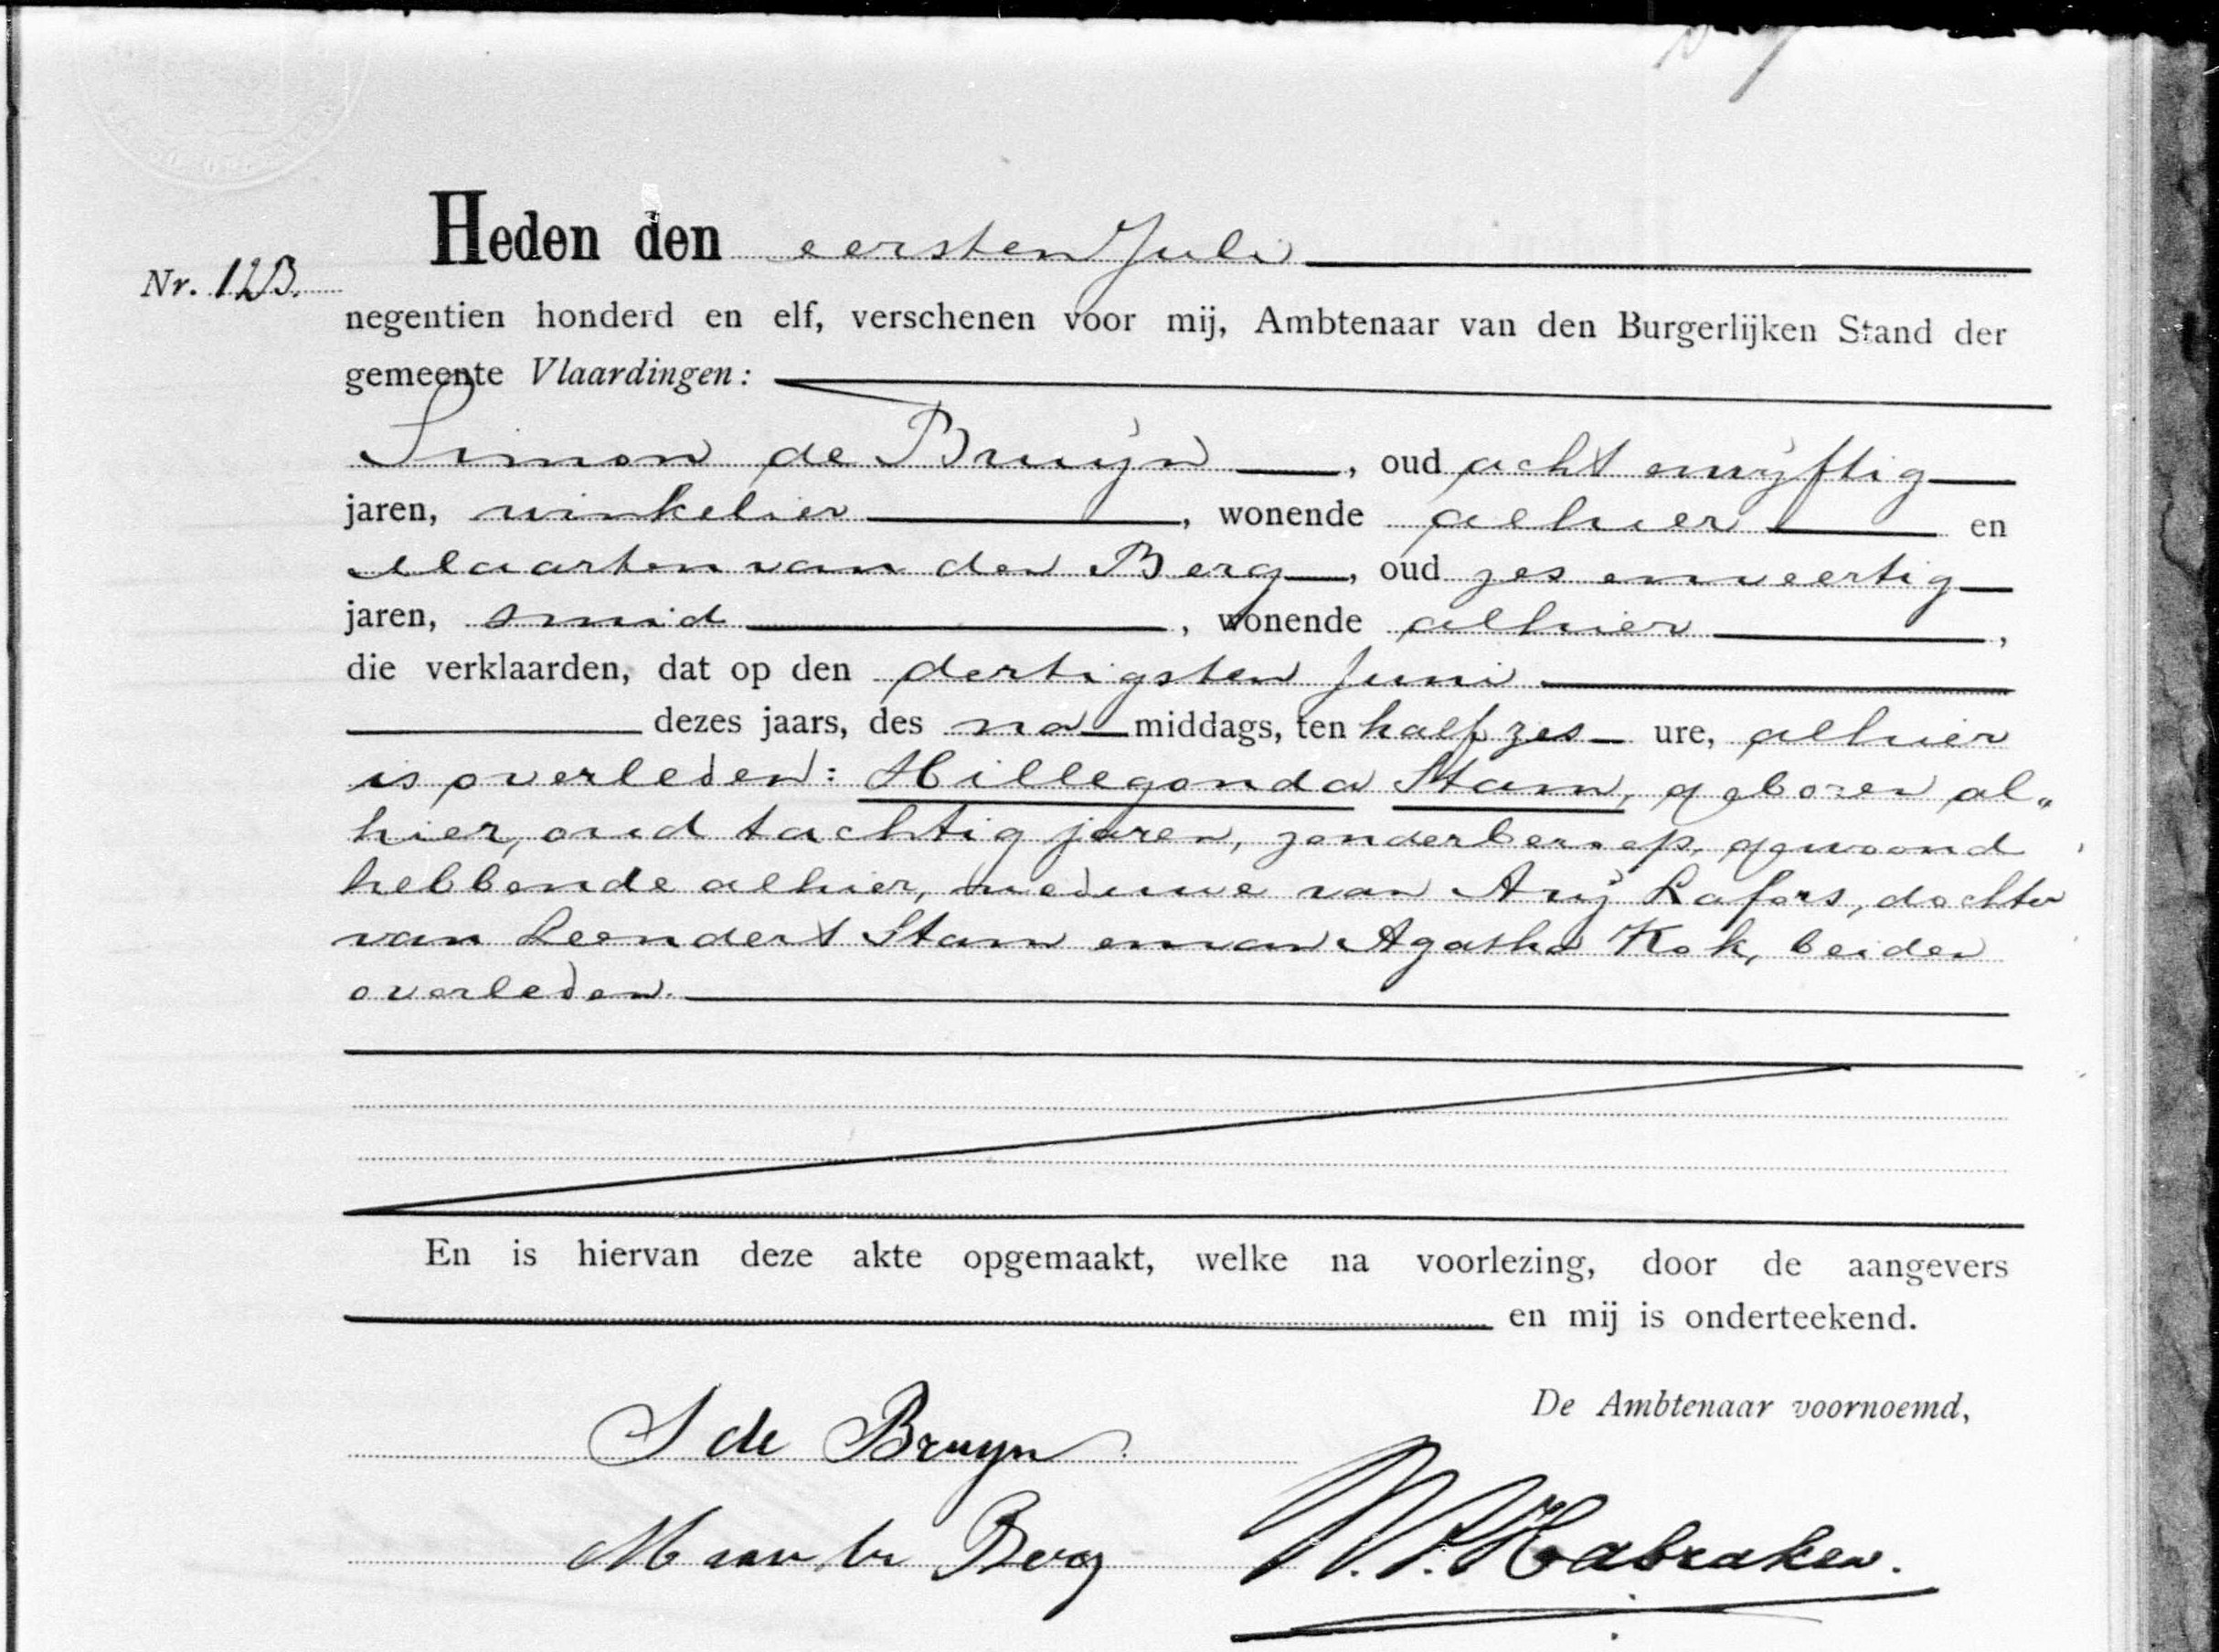 Heden den eersten Juli
Nr. 123.
negentien honderd en elf, verschenen voor mij, Ambtenaar van den Burgerlijken Stand der
gemeente Vlaardingen:
Simon de Bruijn, oud acht en vijftig
jaren, winkelier, wonende alhier en
Maarten van den Berg, oud zes en veertig
jaren, smid, wonende alhier,
die verklaarden, dat op den dertigsten Juni
dezes jaars, des na middags, ten half zes ure, alhier
is overleden: Hillegonda Stam, geboren al„
hier, oud tachtig jaren, zonder beroep, gewoond
hebbende alhier, weduwe van Arij Lafers, dochter
van Leendert Stam en van Agatha Kok, beiden
overleden.
En is hiervan deze akte opgemaakt, welke na voorlezing, door de aangevers
en mij is onderteekend.
De Ambtenaar voornoemd,
S de Bruyn
M van Berg Habraken.